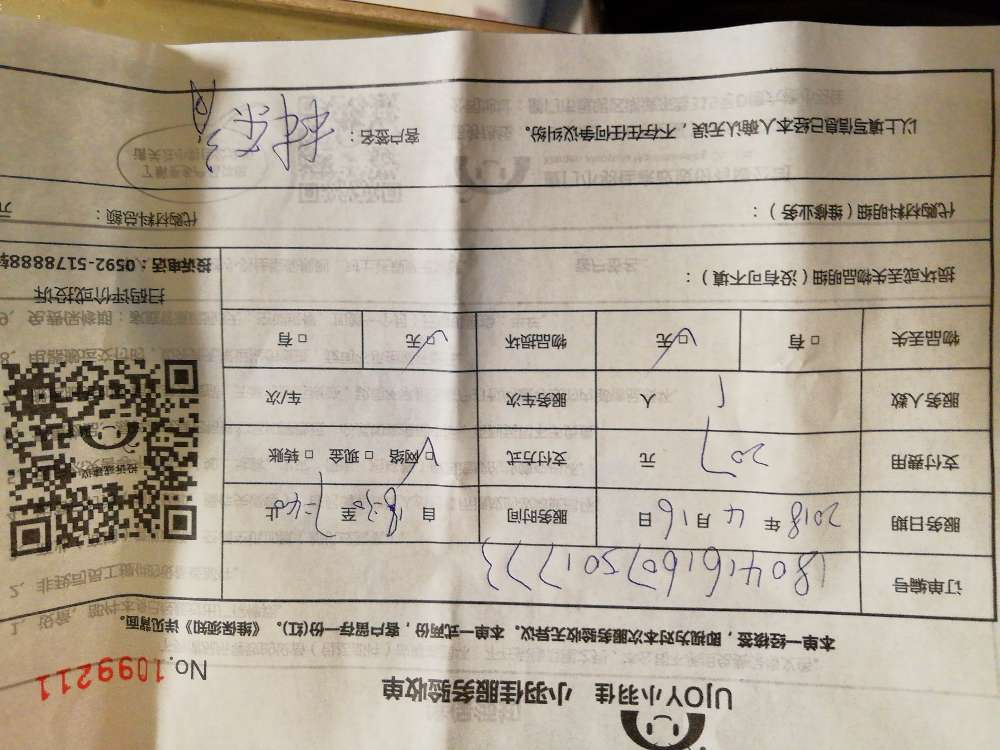 UJOY小羽佳 小羽佳服务验收单
No.1099211
本单一经核签，即视为对本次服务验收无异议。本单一式两份，客户留存一份(红)。《维保须知》详见背面。
订单编号
服务日期 2018 年 4 月 16 日 服务时间 自 至 止
支付费用 207 元 支付方式 □网络 □现金 □转账
服务人数 1 人 服务车次 车/次
物品丢失 □有 □无 物品损坏 □无 □有
损坏或丢失物品明细（没有可不填）：
扫码评价或投诉
投诉电话：0592-5178888转
代购材料明细（维修业务）： 代购材料总额： 元
以上填写信息已经本人确认无误，不存在任何争议纠纷。 客户签名：
投诉或建议